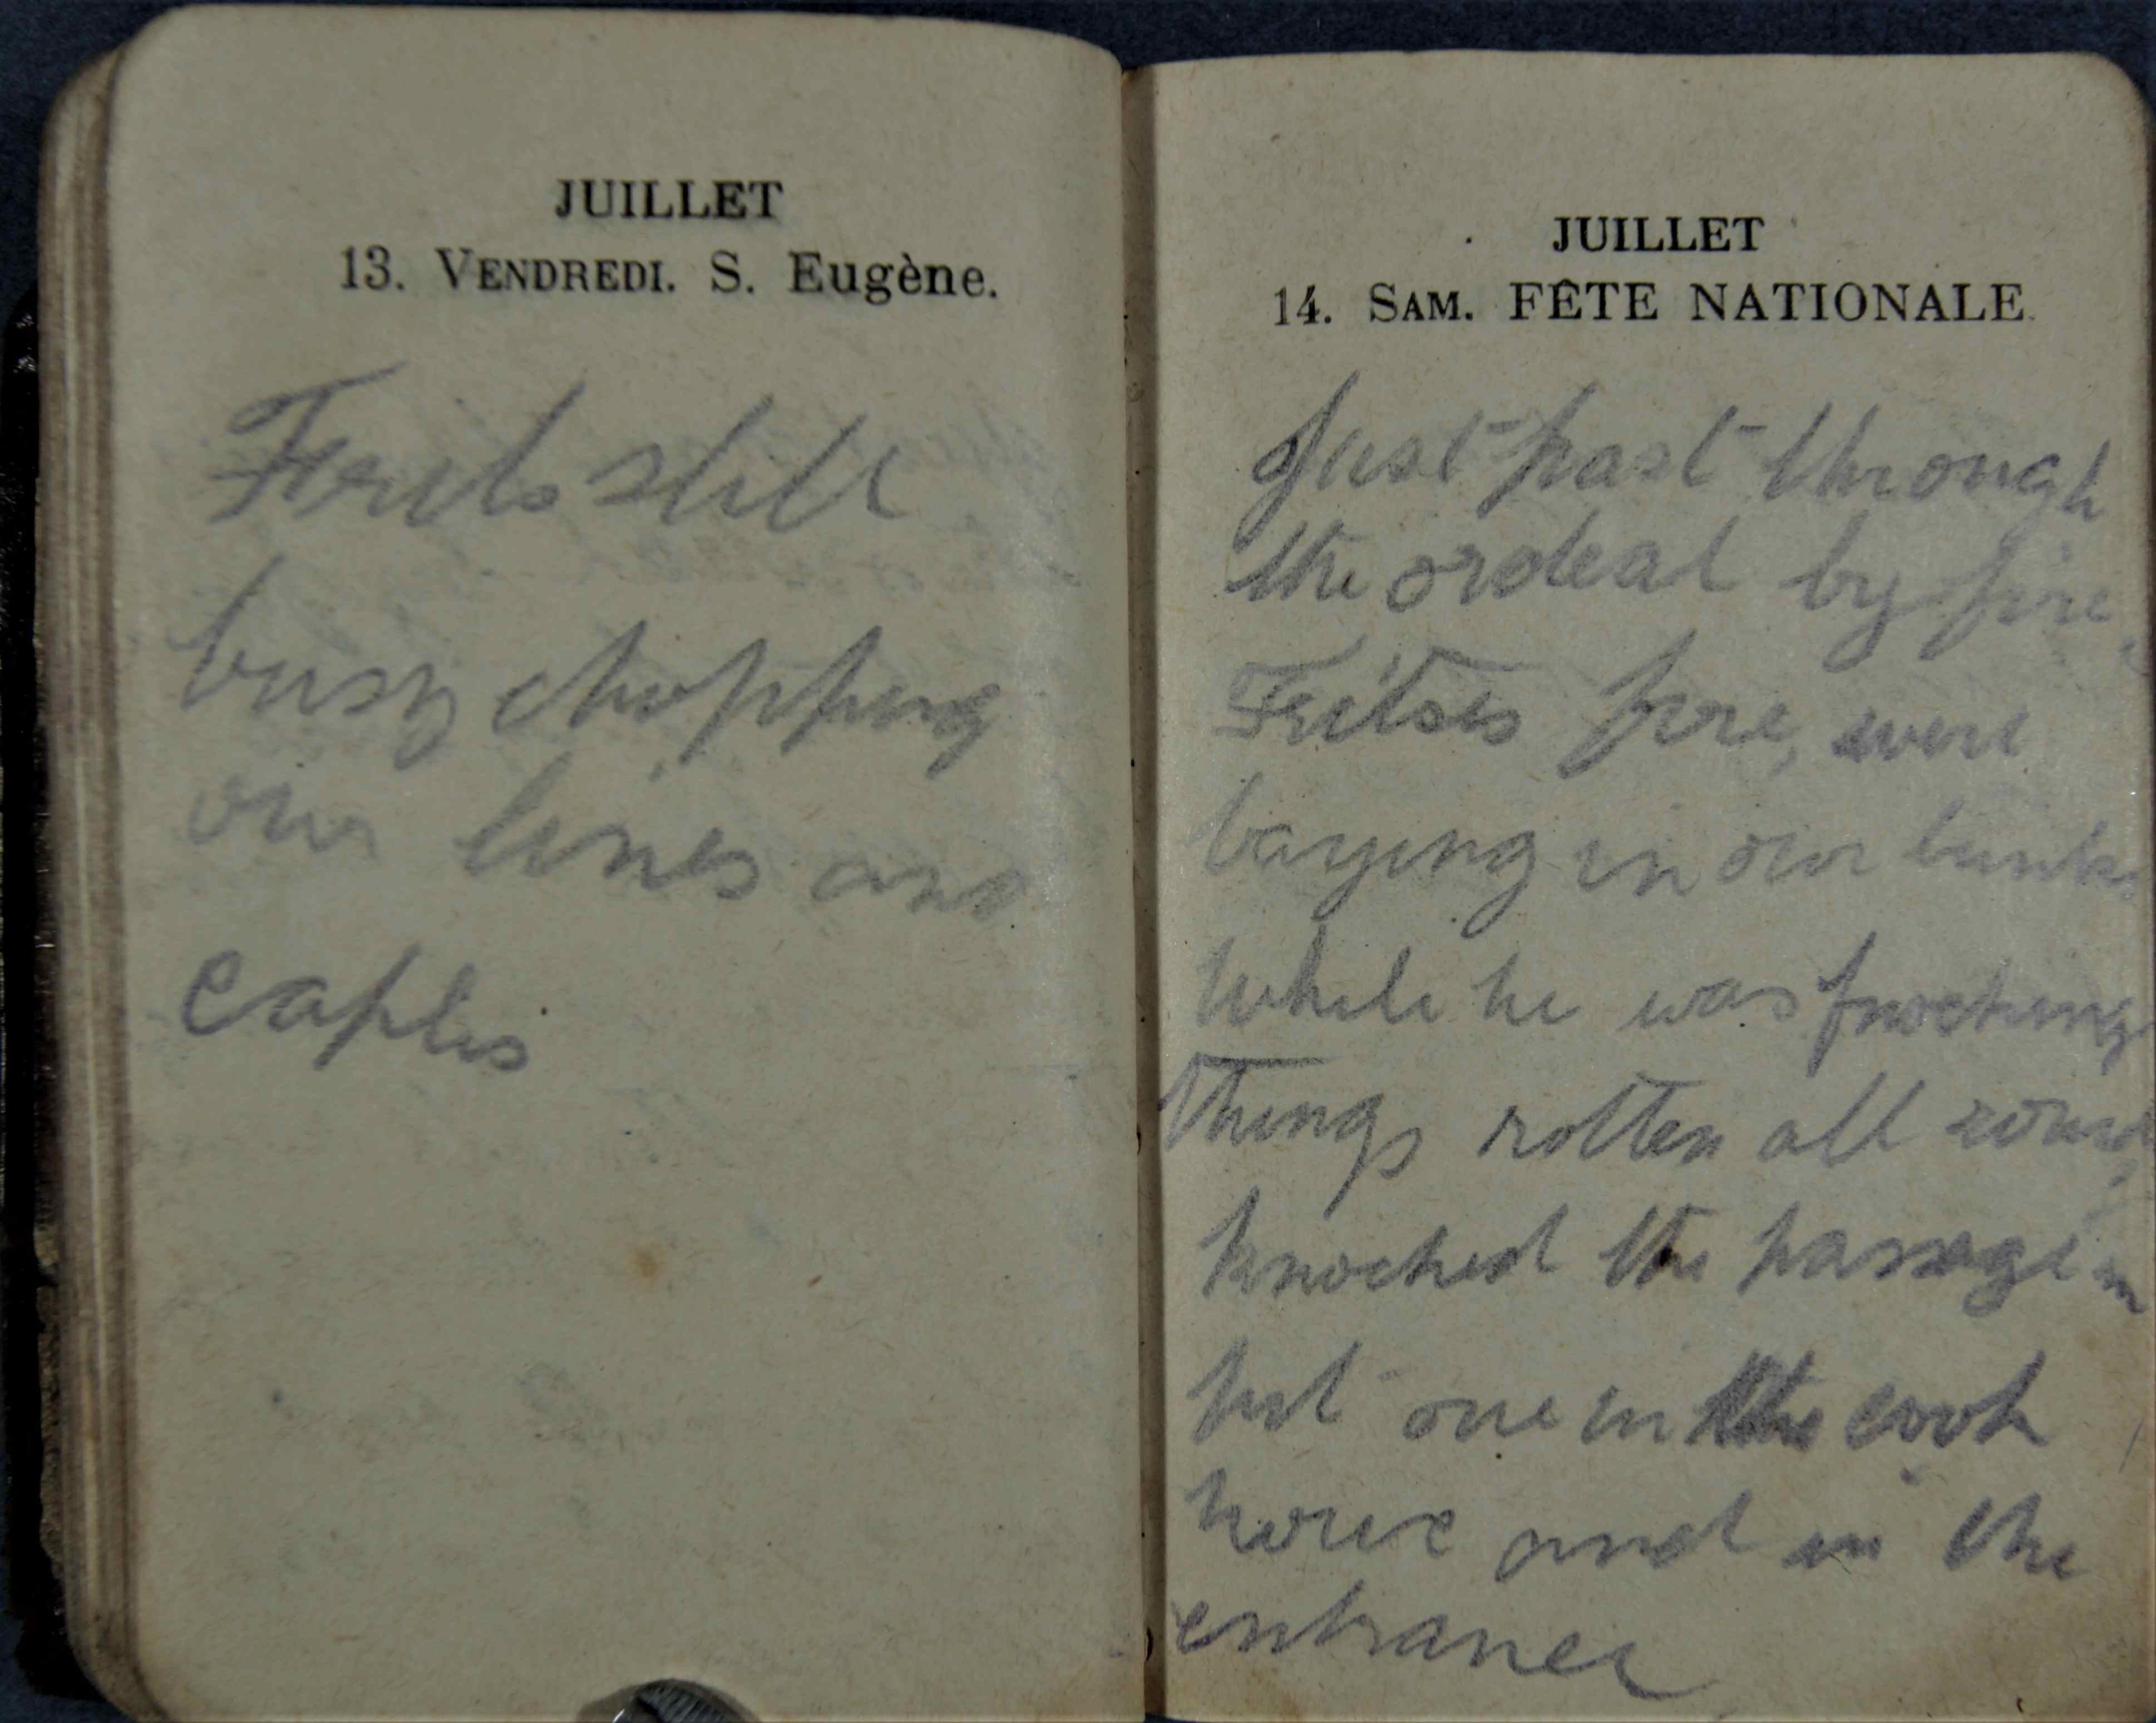 JUILLET
13. VENDREDI. S. Eugène.
Frits still
busy chopping
our lines and
caples
JUILLET
14. SAM. FÊTE NATIONALE
Just past through
the ordeal by fire,
Fritses fire, were
laying in our bunks
while he was knocking
things rotten all round,
knocked the passage in
put one in the cook
house and in the
entrance